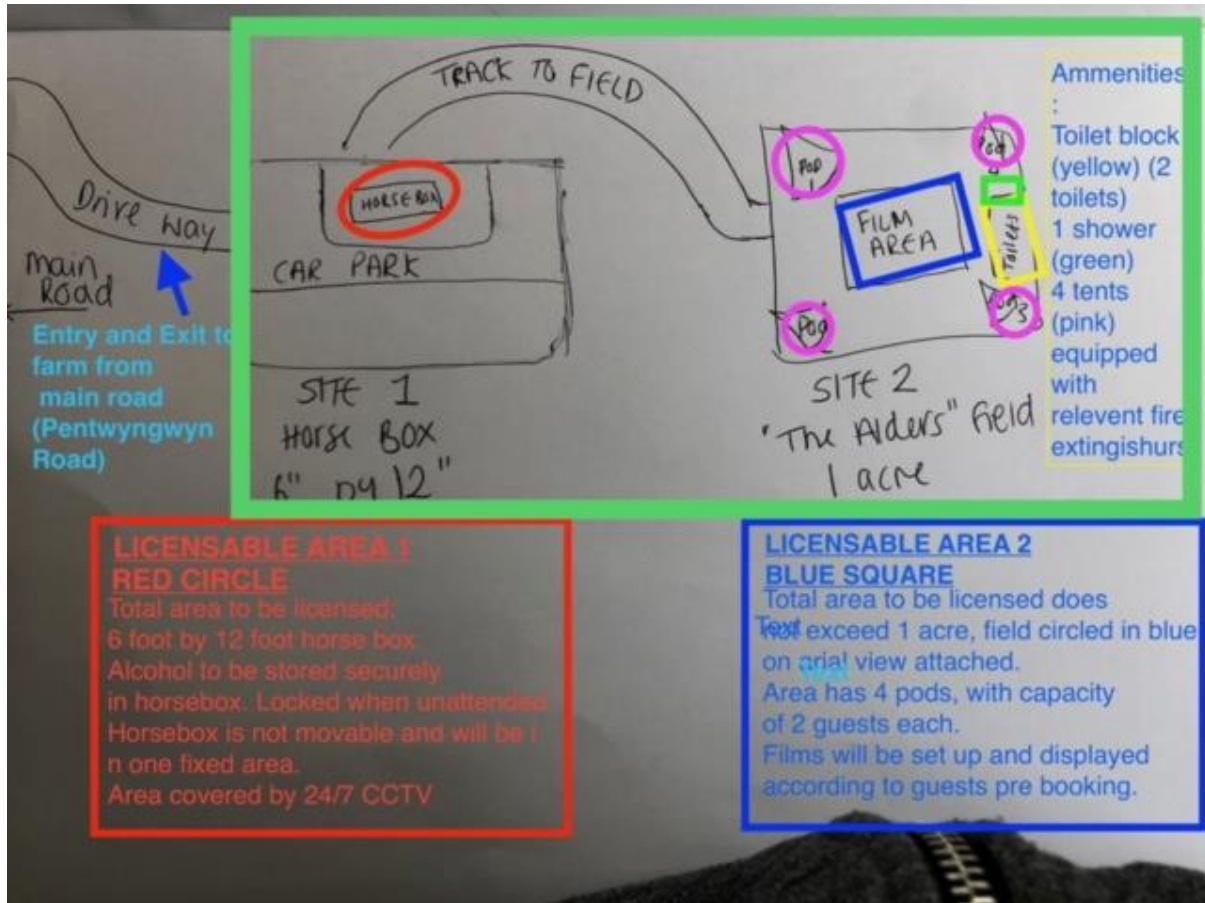 TRACK TO FIELD
Drive way
main
Road
Entry and Exit to
farm from
main road
(Pentwyngwyn
Road)
HORSE BOX
CAR PARK
SITE 1
Horse Box
6" by 12"
POD
1
Pod
FILM
AREA
Toilets
Pod
Pod 3
SITE 2
"The Alders" field
1 acre
Ammenities
:
Toilet block
(yellow) (2
toilets)
1 shower
(green)
4 tents
(pink)
equipped
with
relevent fire
extingishurs
LICENSABLE AREA 1
RED CIRCLE
Total area to be licensed:
6 foot by 12 foot horse box
Alcohol to be stored securely
in horsebox. Locked when unattended
Horsebox is not movable and will be i
n one fixed area.
Area covered by 24/7 CCTV
LICENSABLE AREA 2
BLUE SQUARE
Total area to be licensed does
Text
not exceed 1 acre, field circled in blue
on arial view attached.
Text
Area has 4 pods, with capacity
of 2 guests each.
Films will be set up and displayed
according to guests pre booking.